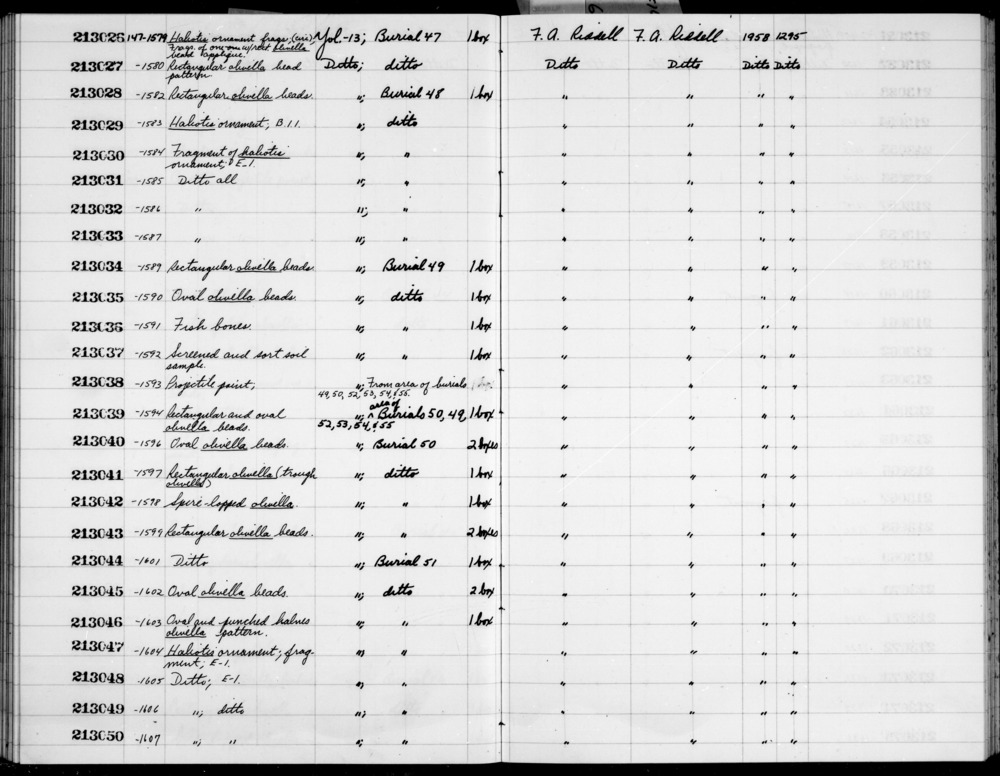 213026 147-1579 Haliotis ornament frags. (uii) Yol.-13; Burial 47 1 box F. A. Riddell F. A. Riddell 1958 1295
Frags. of w/rect olivella
beads applique.
213027 -1580 Rectangular olivella bead Ditto; ditto Ditto Ditto Ditto Ditto
pattern.
213028 -1582 Rectangular olivella beads. "; Burial 48 1 box " " " "
213029 -1583 Haliotis ornament, B.1.1. "; ditto " " " "
213030 -1584 Fragment of haliotis "; " " " " "
ornament; E-1.
213031 -1585 Ditto all "; " " " " "
213032 -1586 " "; " " " " "
213033 -1587 " "; " " " " "
213034 -1589 Rectangular olivella beads "; Burial 49 1 box " " " "
213035 -1590 Oval olivella beads. "; ditto 1 box " " " "
213036 -1591 Fish bones. "; " 1 box " " " "
213037 -1592 Screened and sort soil "; " 1 box " " " "
sample.
213038 -1593 Projectile point; "; From area of burials 1 box " " " "
49, 50, 52, 53, 54, & 55.
213039 -1594 Rectangular and oval "; ^ area of Burials 50, 49, 1 box " " " "
olivella beads. 52, 53, 54, & 55
213040 -1596 Oval olivella beads. "; Burial 50 2 boxes " " " "
213041 -1597 Rectangular olivella (trough "; ditto 1 box " " " "
olivella)
213042 -1598 Spire-lopped olivella. "; " 1 box " " " "
213043 -1599 Rectangular olivella beads. "; " 2 boxes " " " "
213044 -1601 Ditto "; Burial 51 1 box " " " "
213045 -1602 Oval olivella beads. "; ditto 2 box " " " "
213046 -1603 Oval and punched halves "; " 1 box " " " "
olivella pattern.
213047 -1604 Haliotis ornament; frag- "; " " " " "
ment; E-1.
213048 -1605 Ditto; E-1. "; " " " " "
213049 -1606 "; ditto "; " " " " "
213050 -1607 "; " "; " " " " "